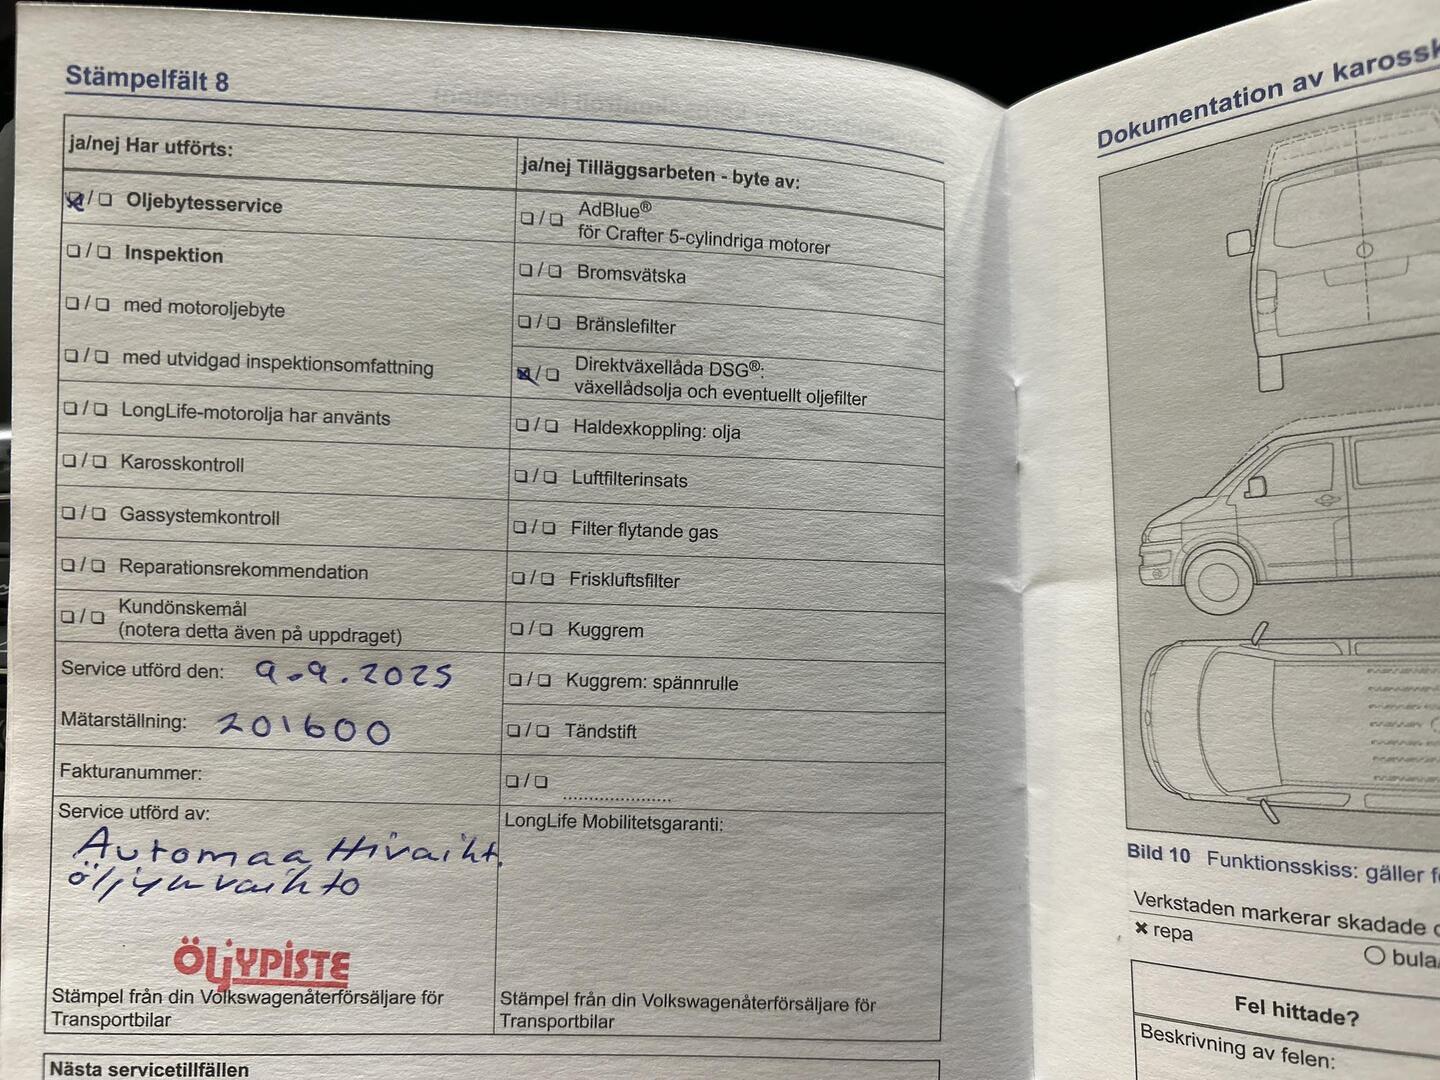 Stämpelfält 8
ja/nej Har utförts:
☒/☐ Oljebytesservice
☐/☐ Inspektion
☐/☐ med motoroljebyte
☐/☐ med utvidgad inspektionsomfattning
☐/☐ LongLife-motorolja har använts
☐/☐ Karosskontroll
☐/☐ Gassystemkontroll
☐/☐ Reparationsrekommendation
☐/☐ Kundönskemål
(notera detta även på uppdraget)
Service utförd den: 9.9.2025
Mätarställning: 201600
Fakturanummer:
Service utförd av:
Automaattivaiht.
öljynvaihto
ÖLJYPISTE
Stämpel från din Volkswagenåterförsäljare för
Transportbilar
ja/nej Tilläggsarbeten - byte av:
☐/☐ AdBlue®
för Crafter 5-cylindriga motorer
☐/☐ Bromsvätska
☐/☐ Bränslefilter
☒/☐ Direktväxellåda DSG®:
växellådsolja och eventuellt oljefilter
☐/☐ Haldexkoppling: olja
☐/☐ Luftfilterinsats
☐/☐ Filter flytande gas
☐/☐ Friskluftsfilter
☐/☐ Kuggrem
☐/☐ Kuggrem: spännrulle
☐/☐ Tändstift
☐/☐ ......................
LongLife Mobilitetsgaranti:
Stämpel från din Volkswagenåterförsäljare för
Transportbilar
Nästa servicetillfällen
Dokumentation av
Bild 10 Funktionsskiss: gäller
Verkstaden markerar skadade
× repa
○ bula
Fel hittade?
Beskrivning av felen: